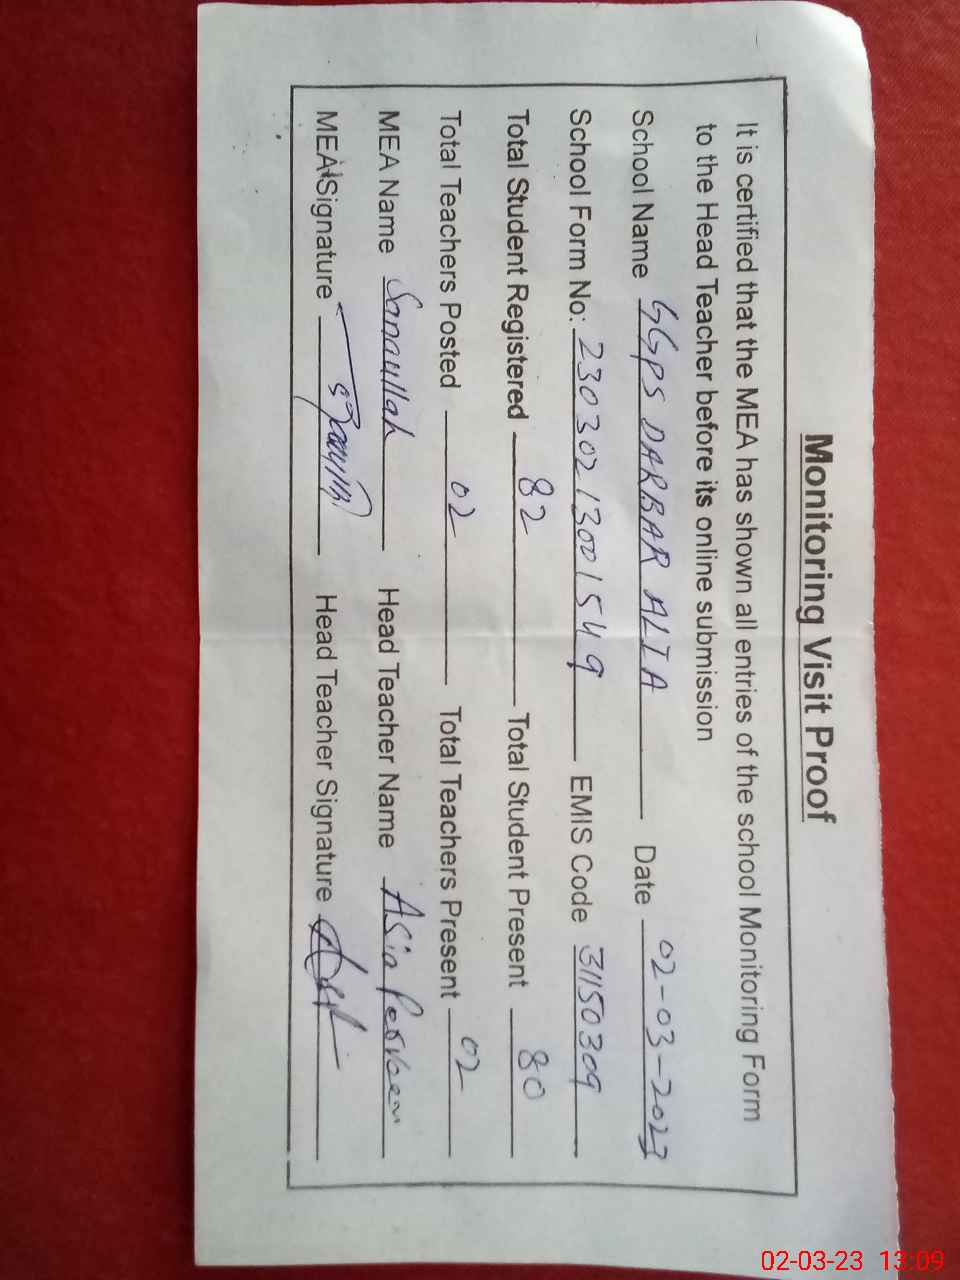 Monitoring Visit Proof
It is certified that the MEA has shown all entries of the school Monitoring Form
to the Head Teacher before its online submission
School Name GGPS DARBAR ALIA Date 02-03-2023
School Form No: 23030213001549 EMIS Code 31150309
Total Student Registered 82 Total Student Present 80
Total Teachers Posted 02 Total Teachers Present 02
MEA Name Sanaullah Head Teacher Name Asia Perveen
MEA Signature Head Teacher Signature
02-03-23 13:09